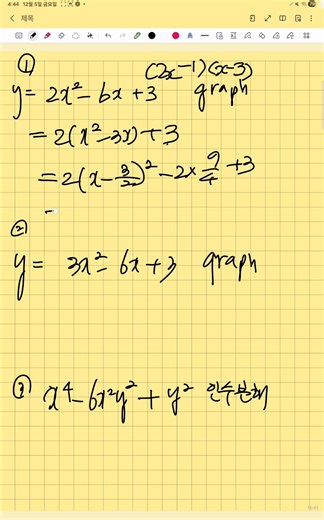 4:44 12월 5일 금요일
제목
① (2x-1)(x-3)
y = 2x² - 6x + 3 graph
= 2(x² - 3x) + 3
= 2(x - 3/2)² - 2 × 9/4 + 3
=
②
y = 3x² - 6x + 3 graph
③ x⁴ - 6x²y² + y² 인수분해